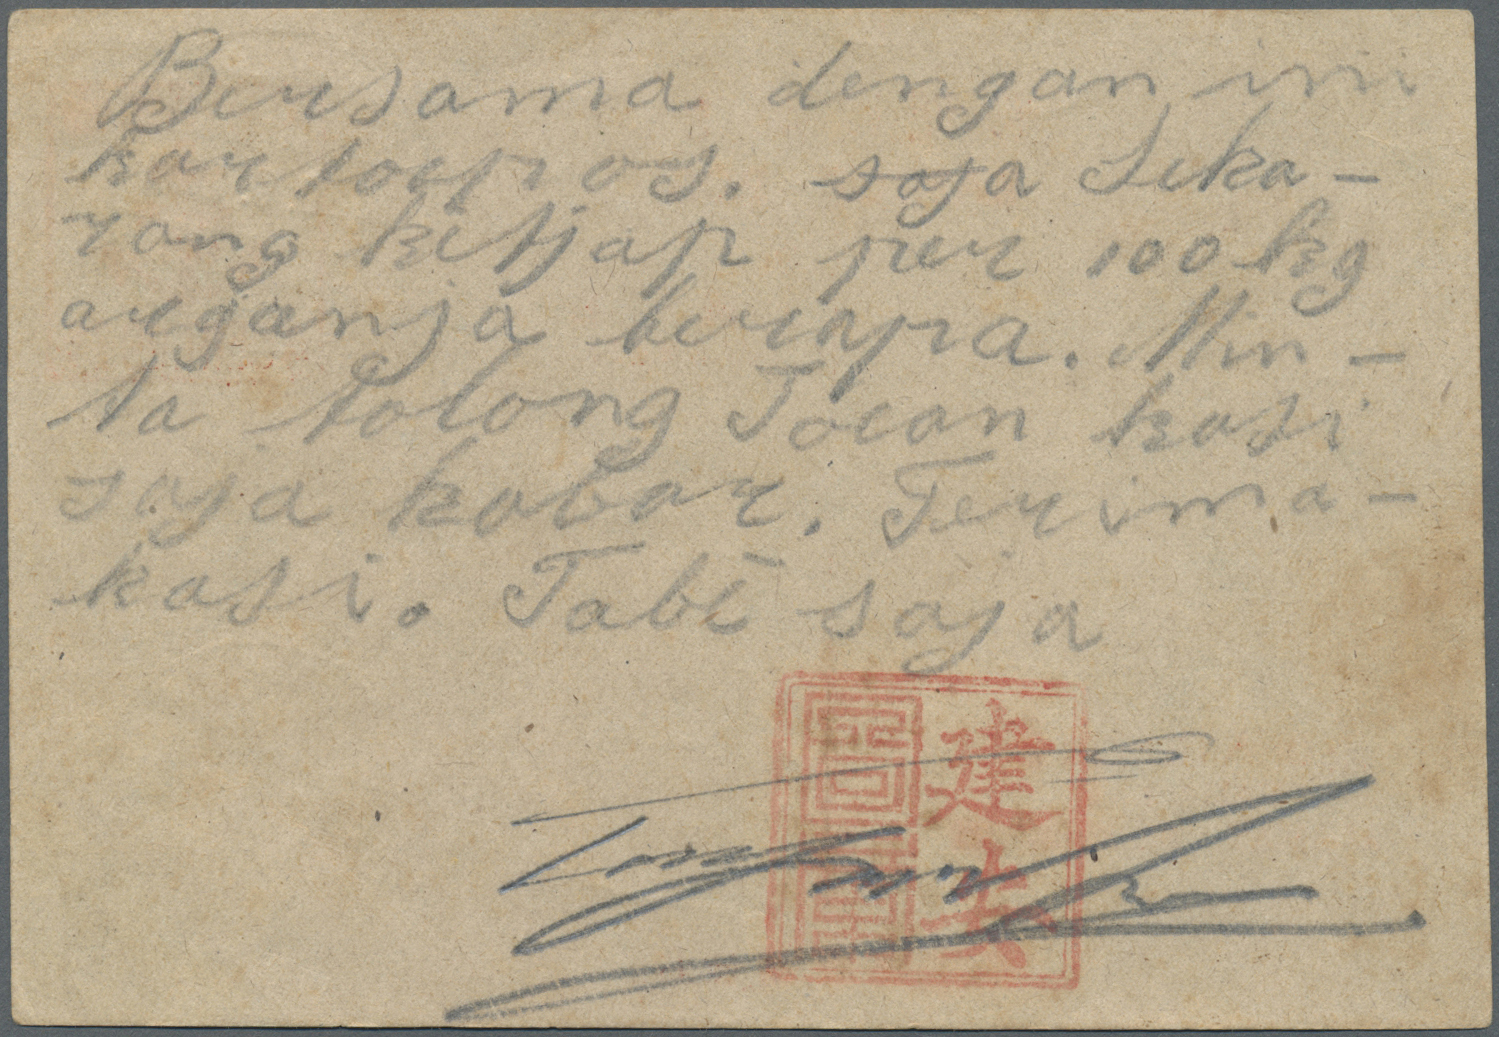 Bersama dengan ini
kartoepos. saja Seka-
rang ketjap per 100 kg
arganja berapa. Min-
ta tolong Toean kasi
saja kabar. Terima-
kasi. Tabe saja
建安
圖書